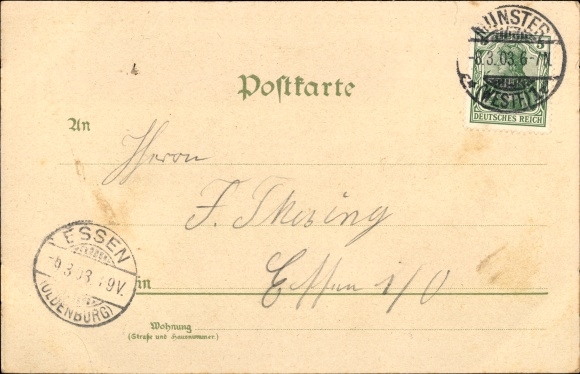 MÜNSTER
-8.3.03.6-7N.
* (WESTF) *
DEUTSCHES REICH
Postkarte
An
Herrn
F. Thesing
ESSEN
-9.3.03. 7-9V.
(OLDENBURG)
in
Essen i/O
Wohnung
(Straße und Hausnummer.)